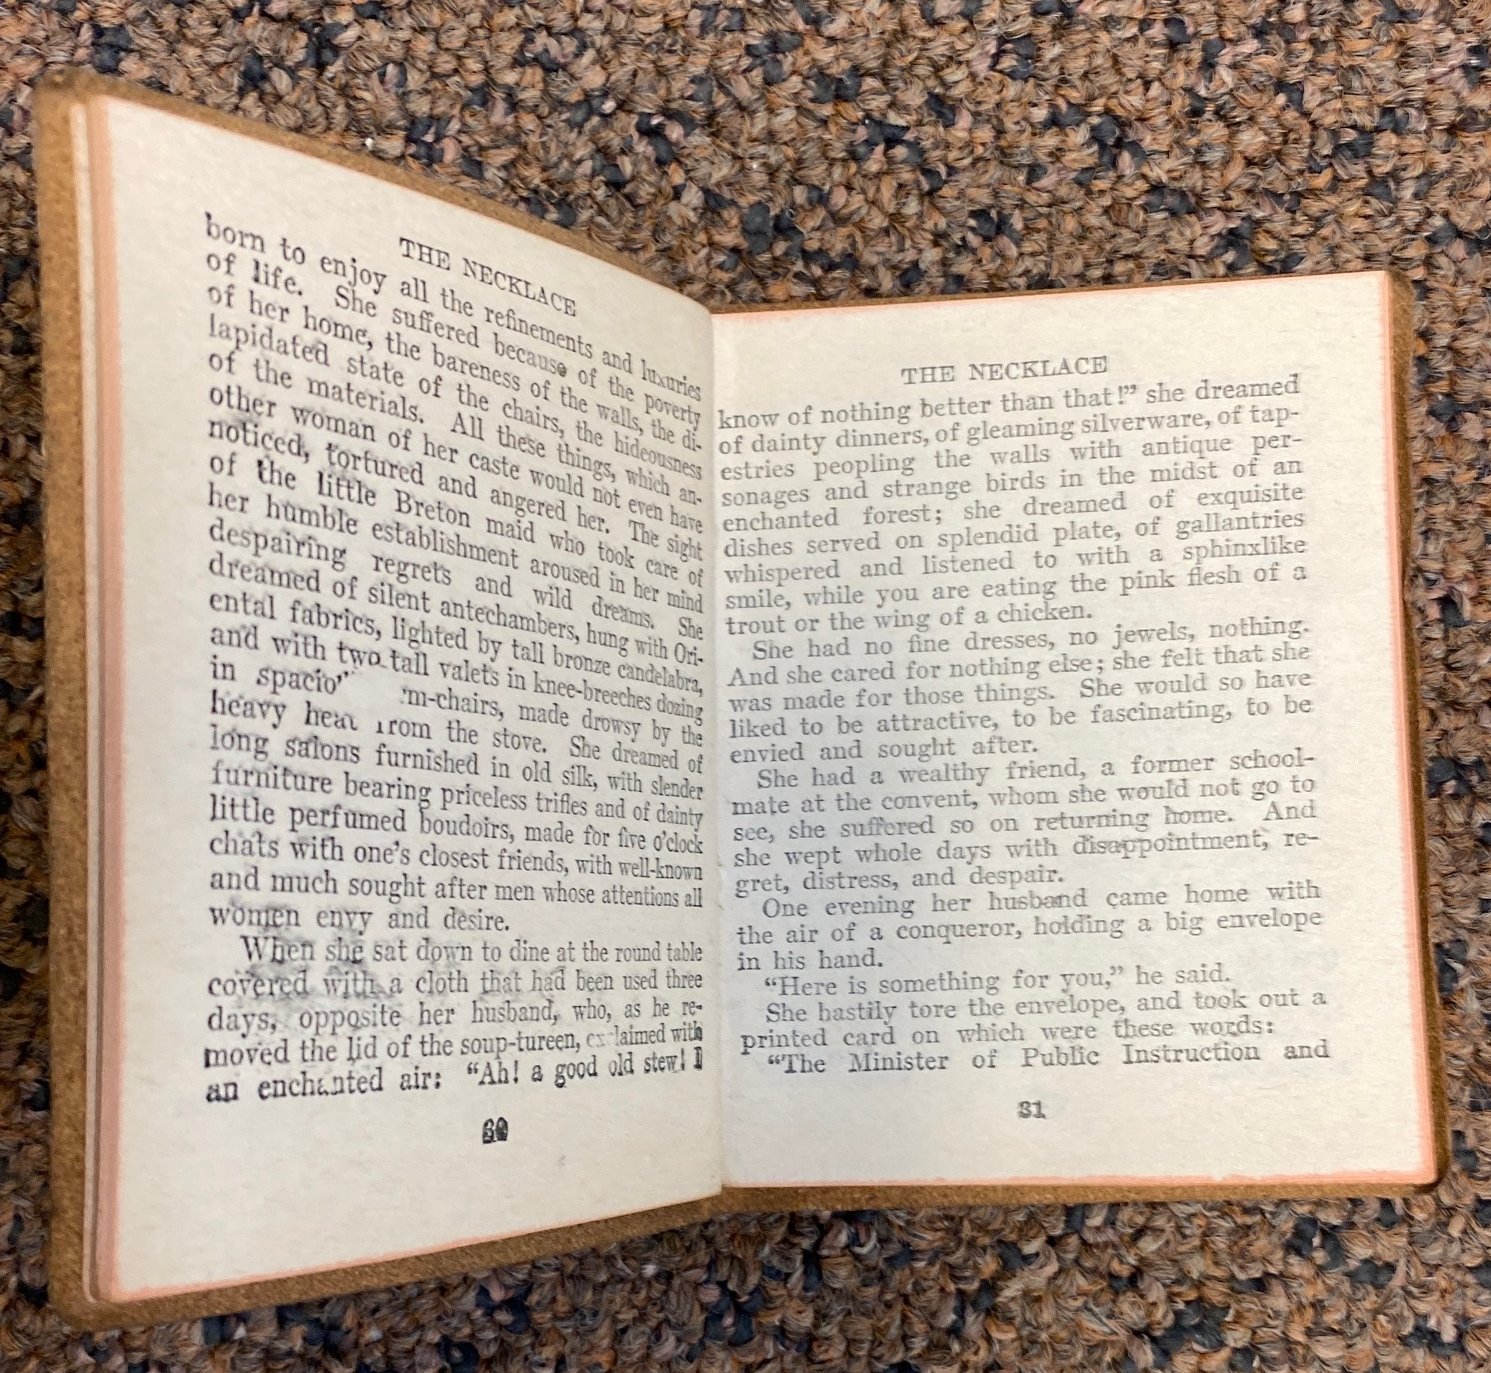 THE NECKLACE
born to enjoy all the refinements and luxuries
of life. She suffered because of the poverty
of her home, the bareness of the walls, the di-
lapidated state of the chairs, the hideousness
of the materials. All these things, which an-
other woman of her caste would not even have
noticed, tortured and angered her. The sight
of the little Breton maid who took care of
her humble establishment aroused in her mind
despairing regrets and wild dreams. She
dreamed of silent antechambers, hung with Ori-
ental fabrics, lighted by tall bronze candelabra,
and with two tall valets in knee-breeches dozing
in made drowsy by the
heavy heat from the stove. She dreamed of
long salons furnished in old silk, with slender
furniture bearing priceless trifles and of dainty
little perfumed boudoirs, made for five o'clock
chats with one's closest friends, with well-known
and much sought after men whose attentions all
women envy and desire.
When she sat down to dine at the round table
covered with a cloth that had been used three
days, opposite her husband, who, as he re-
moved the lid of the soup-tureen, exclaimed with
an enchanted air: “Ah! a good old stew! I
THE NECKLACE
know of nothing better than that!” she dreamed
of dainty dinners, of gleaming silverware, of tap-
estries peopling the walls with antique per-
sonages and strange birds in the midst of an
enchanted forest; she dreamed of exquisite
dishes served on splendid plate, of gallantries
whispered and listened to with a sphinxlike
smile, while you are eating the pink flesh of a
trout or the wing of a chicken.
She had no fine dresses, no jewels, nothing.
And she cared for nothing else; she felt that she
was made for those things. She would so have
liked to be attractive, to be fascinating, to be
envied and sought after.
She had a wealthy friend, a former school-
mate at the convent, whom she would not go to
see, she suffered so on returning home. And
she wept whole days with disappointment, re-
gret, distress, and despair.
One evening her husband came home with
the air of a conqueror, holding a big envelope
in his hand.
“Here is something for you,” he said.
She hastily tore the envelope, and took out a
printed card on which were these words:
“The Minister of Public Instruction and
31